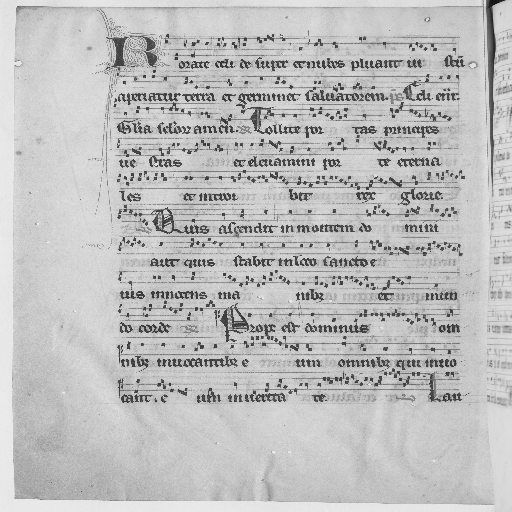 Rorate celi de super et nubes pluant iu stū
aperiatur terra et germinet saluatorem. ps Celi enr.
Gl'ia seclor amen. Tollite por tas principes
ue stras et eleuamini por te eterna
les et introi bit rex glorie.
Quis ascendet in montem do mini
aut quis stabit in loco sancto e
ius innocens ma nibz et mun
do corde Prope est dominus om
nibz inuocantibz e um omnibz qui inuo
cant. e um in uerita te. Lau